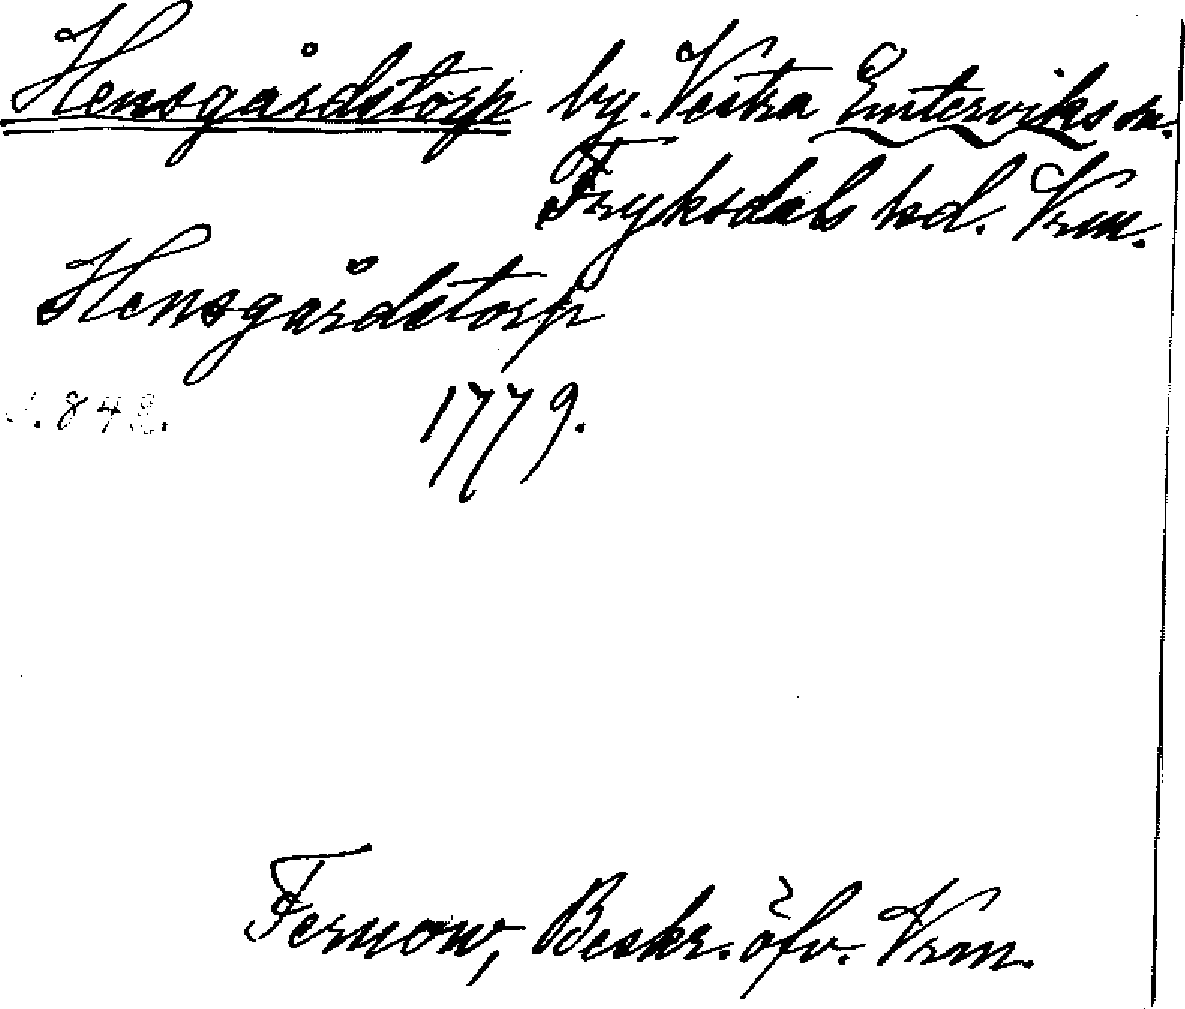 Hensgårdstorp by. Vestra Emterviks sn.
Fryksdals hd. Vrm.
Hensgårdstorp
1779.
Fernow, Beskr. öfv. Vrm.